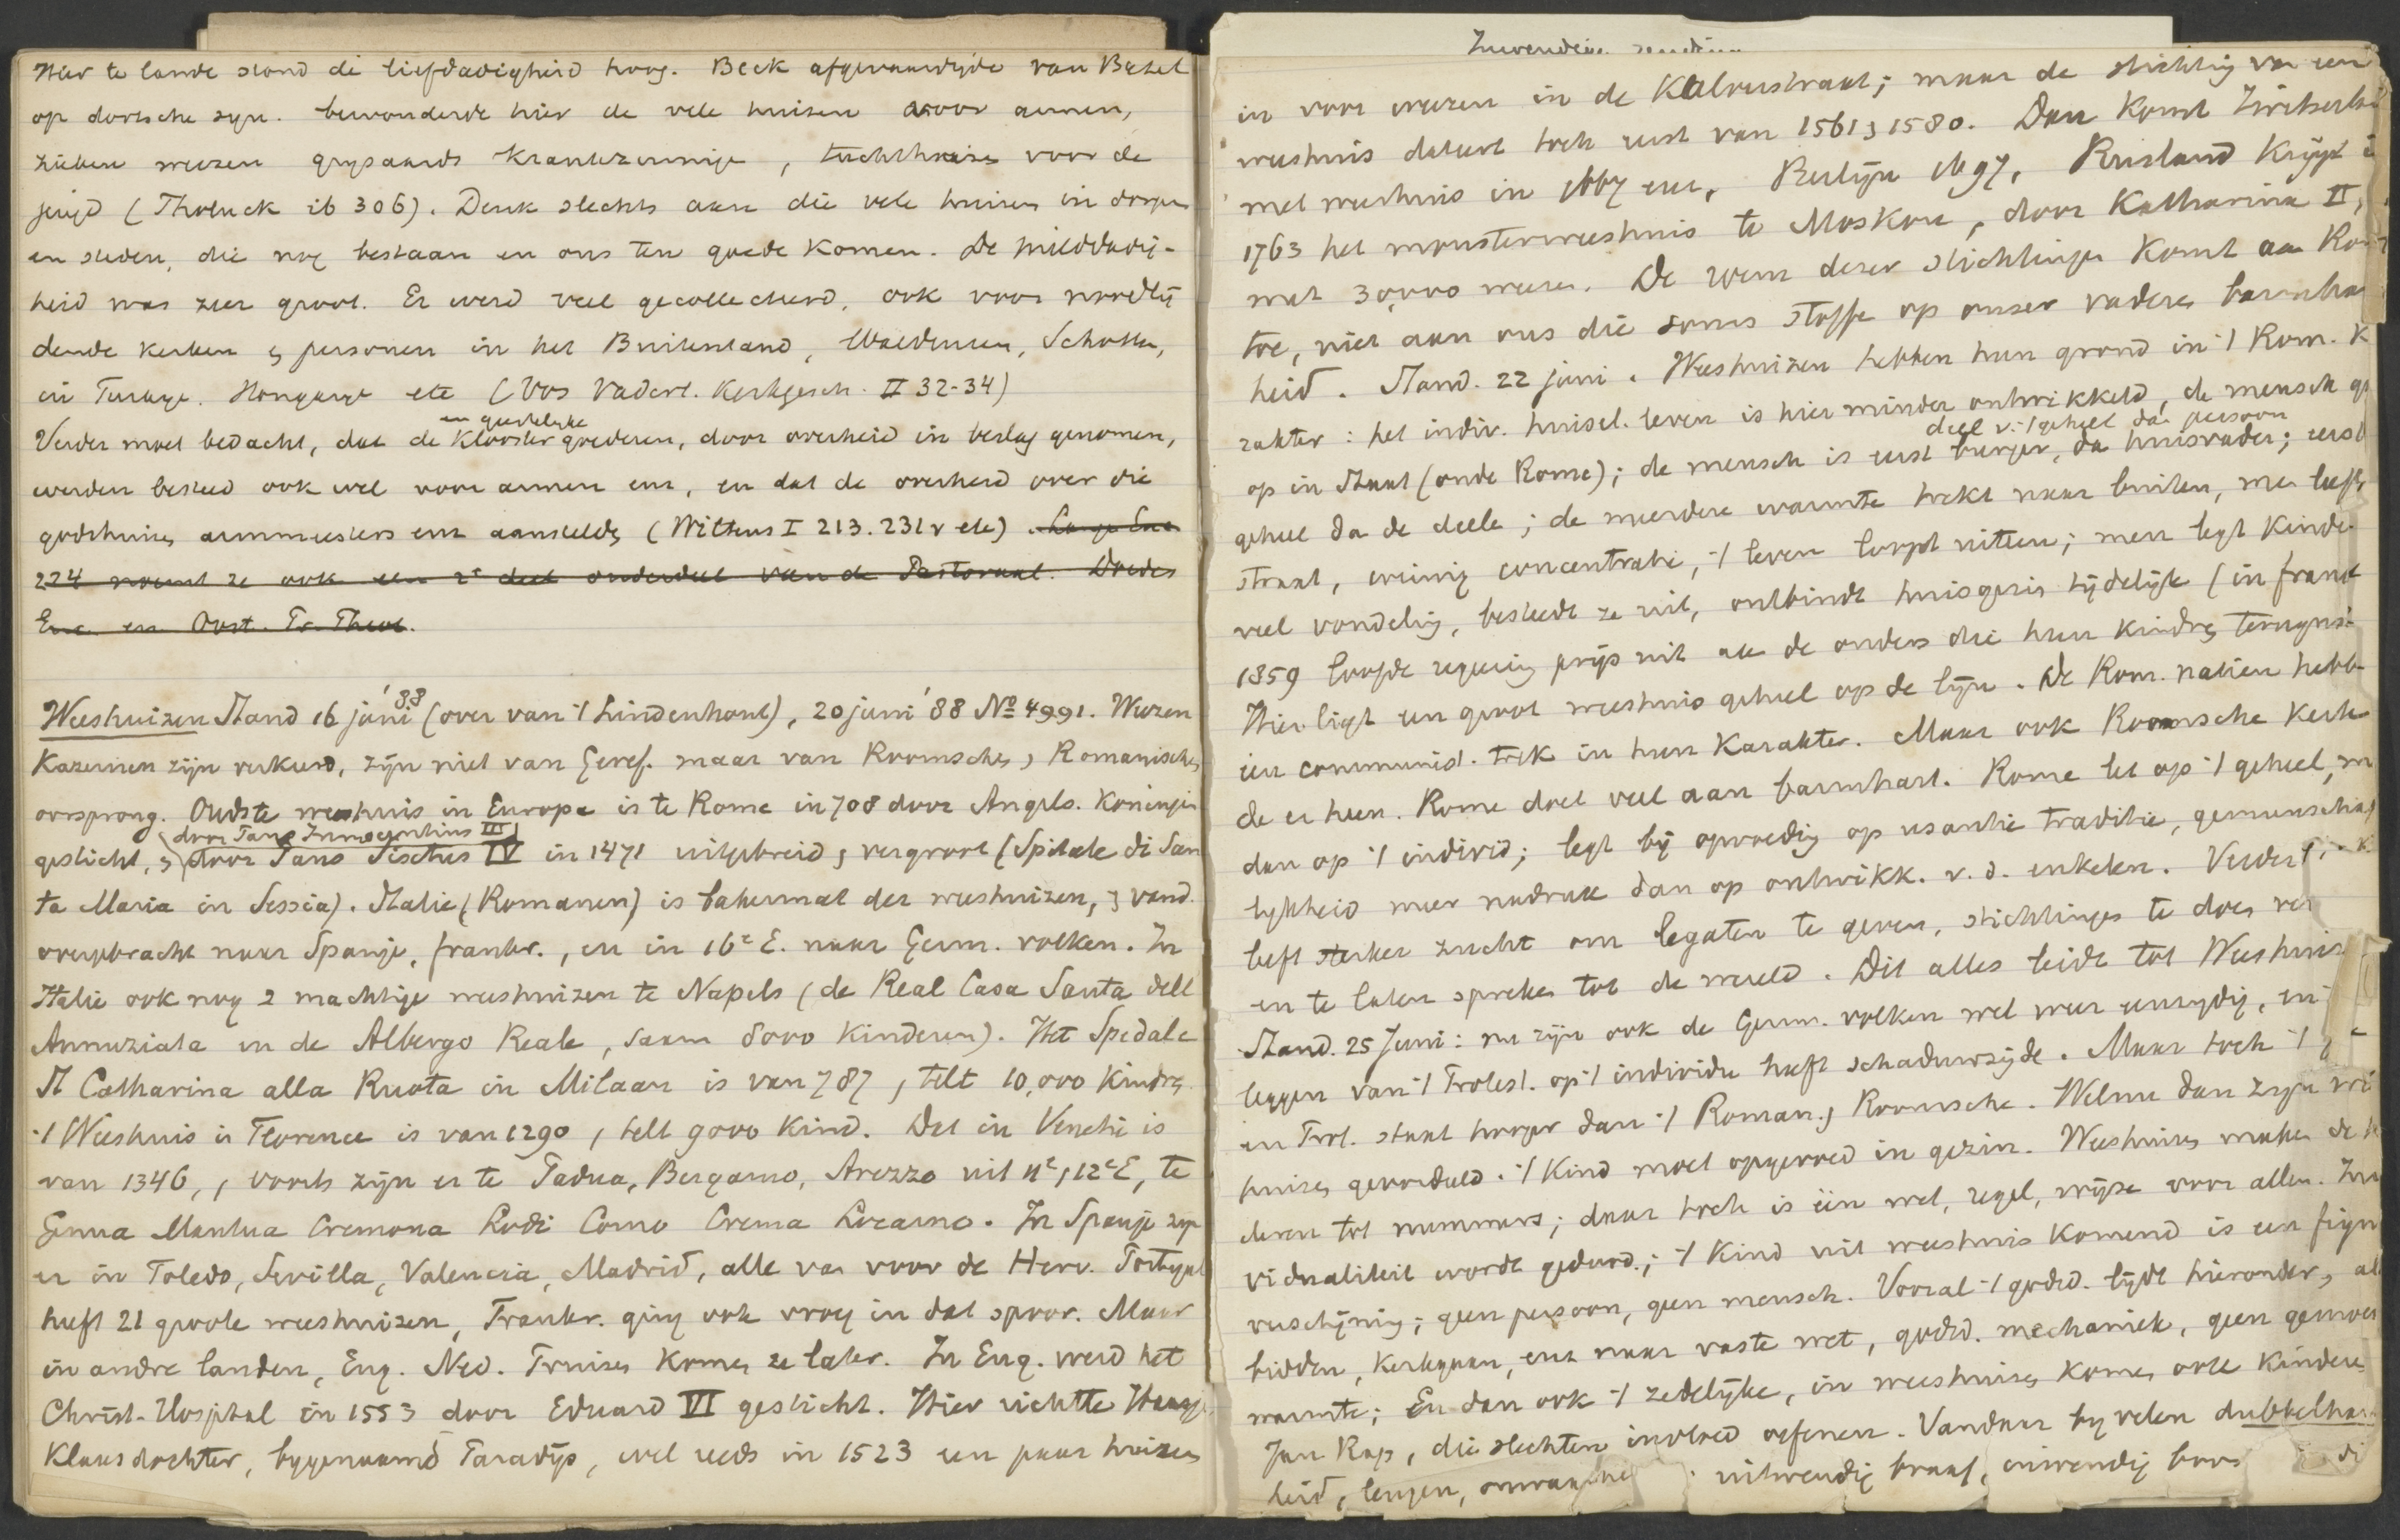 Hier te lande stond de liefdadigheid hoog. Beck afgevaardigde van Bazel
op dortsche syn. bewonderde hier de vele huizen voor armen,
zieken weezen grijsaards krankzinnige, tuchthuize voor de
jeugd (Tholuck ib 306). Denk slechts aan die vele huizen in dorpen
en steden, die nog bestaan en ons ten goede komen. De milddadig-
heid was zeer groot. Er werd veel gecollecteerd, ook voor noodlij
dende kerken & personen in het Buitenland, Waldensen, Schotten,
in Turkije. Hongarije etc (Vos Vaderl. Kerkgesch. II 32-34)
en geestelyke
Verder moet bedacht, dat de Klooster goederen, door overheid in beslag genomen,
werden besteed ook wel voor armen enz, en dat de overheid over die
godshuizen armmeesters enz aanstelde (Wiltens I 213. 231v etc). Lange Enc
224 noemt ze ook een 2e deel onderdeel van de Pastoraal. Doedes
Enc. en Oost. Tr. Theol.
Weeshuizen Stand 16 juni '88 (over van 't Lindenhout), 20 juni '88 No 4991. Weezen
Kazernen zijn verkeerd, zijn niet van Geref. maar van Roomsche, Romanische
oorsprong. Oudste weeshuis in Europa is te Rome in 708 door Angels. Koningin
door Paus Innocentius III
gesticht, & door Paus Sixtus IV in 1471 uitgebreid & vergroot (Spitale di San
ta Maria in Sessia). Italie (Romanen) is bakermat der weeshuizen, & vand.
overgebracht naar Spanje, frankr., en in 16e E. naar Germ. volken. In
Italie ook nog 2 machtige weeshuizen te Napels (de Real Casa Santa dell
Annuziata en de Albergo Reale, saam 8000 kinderen). Het Spedale
St Catharina alla Ruota in Milaan is van 787, telt 10,000 kindren
't Weeshuis in Florence is van 1290, telt 9000 kind. Dat in Venetië is
van 1346, , voorts zijn er te Padua, Bergamo, Arezzo uit 11e, 12e E, te
Genua Mantua Cremona Lodi Como Crema Locarno. In Spanje zijn
er in Toledo, Sevilla, Valencia, Madrid, alle van voor de Herv. Portugal
heeft 21 groote weeshuizen, Frankr. ging ook vroeg in dat spoor. Maar
in andre landen, Eng. Ned. Pruisen komen ze later. In Eng. werd het
Christ-Hospital in 1553 door Eduard VI gesticht. Hier richtte Haasje
Klaasdochter, bygenaamd Paradijs, wel reeds in 1523 een paar huizen
Inwendige zending
in voor weezen in de Kalverstraat; maar de stichting van een
weeshuis dateert toch eerst van 1561 & 1580. Dan komt Zwitserland
met weeshuis in 1667 enz, Berlijn 1697, Rusland krijgt in
1763 het monsterweeshuis te Moskou, door Katharina II,
met 30,000 weezen. De roem dezer stichtingen komt aan Rome
toe, niet aan ons die soms stoffe op onser vaderen barmhar
heid. Stand. 22 juni. Weeshuizen hebben hun grond in 't Rom. K
rakter: het indiv. huisel. leven is hier minder ontwikkeld, de mensch ga
deel v. 't geheel dan persoon
op in Staat (oude Rome); de mensch is eerst burger, dan huisvader; eerst
geheel dan de deele; de meerdere warmte trekt naar buiten, men leeft
straat, weinig concentratie, 't leven loopt uiteen; men legt kinde
veel vondeling, besteedt ze uit, ontbindt huisgezin tijdelijk (in frankr
1859 loofde regeering prijs uit aan de ouders die hun kindren terugna
Hier ligt een groot weeshuis geheel op de lijn. De Rom. natien hebb
een communist. trek in hun Karakter. Maar ook Roomsche kerk
de er heen. Rome doet veel aan barmhart. Rome let op 't geheel, m
dan op 't individ; legt bij opvoeding op usantie traditie, gemeenschap
lykheid meer nadruk dan op ontwikk. v. d. enkelen. Verder
heeft sterker zucht om legaten te geven, stichtingen te doen
en te laten spreken tot de wereld. Dit alles leidt tot Weeshuis
Stand. 25 Juni: nu zijn ook de Germ. volken wel weer eenzydig, en
leggen van 't Protest. op 't individu heeft schaduwzijde. Maar toch 't
en Prot. staat hooger dan 't Roman. & Roomsche. Welnu dan zijn
huizen geoordeeld. 't Kind moet opgevoed in gezin. Weeshuizen maken de k
deren tot nummers; daar toch is één wet, regel, wijze voor allen. In
vidualiteit wordt gedood; 't Kind uit weeshuis komend is een figu
verschijning; geen persoon, geen mensch. Vooral 't godsd. lijdt hieronder, al
bidden, kerkgaan, enz naar vaste wet, godsd. mechaniek, geen gemoe
warmte; En dan ook 't zedelijke, in weeshuizen komen ook kinderen
Jan Rap, die slechten invloed oefenen. Vandaar by velen dubbelhar
heid, leugen, onwaa uitwendig braaf, inwendig boos di